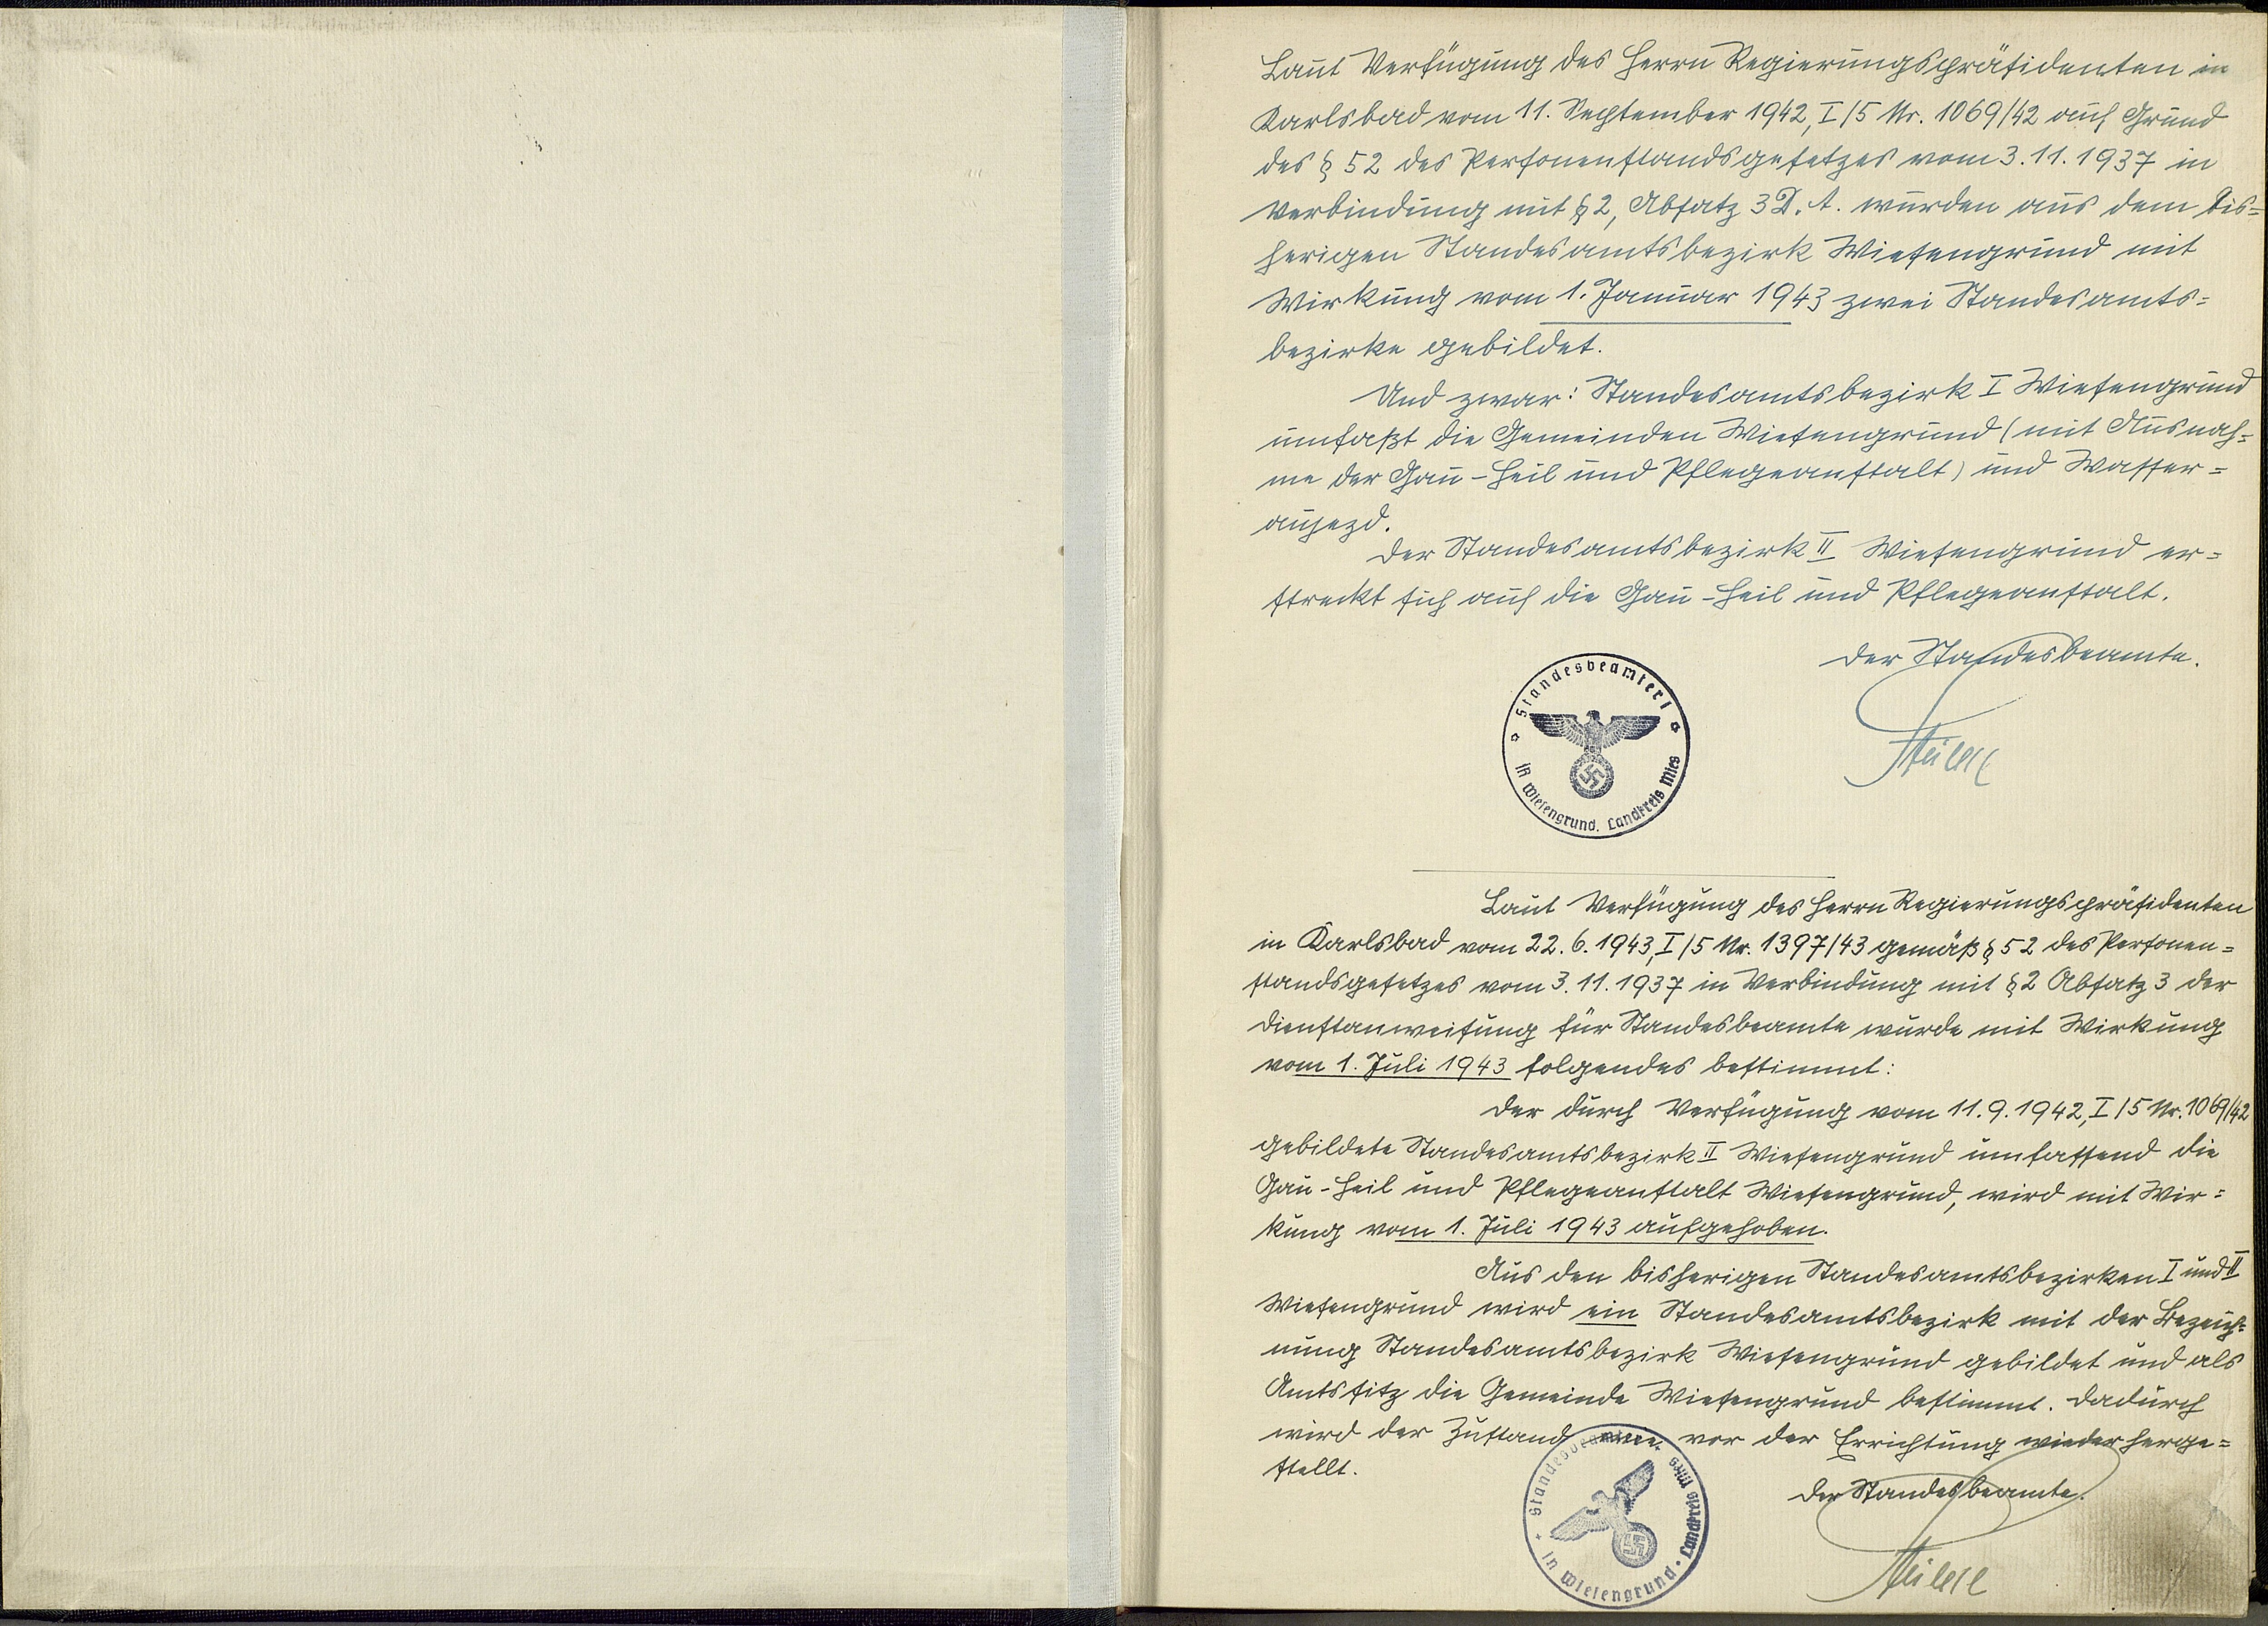 Laut Verfügung des Herrn Regierungspräsidenten in
Karlsbad vom 11. September 1942, I/5 Nr. 1069/42 auf Grund
des § 52 des Personenstandsgesetzes vom 3.11.1937 in
Verbindung mit § 2, Absatz 3 D.A. wurden aus dem bis=
herigen Standesamtsbezirk Wiesengrund mit
Wirkung vom 1. Januar 1943 zwei Standesamts=
bezirke gebildet.
Und zwar: Standesamtsbezirk I Wiesengrund
umfaßt die Gemeinden Wiesengrund (mit Ausnah=
me der Gau-Heil und Pflegeanstalt) und Wasser=
aujezd.
Der Standesamtsbezirk II Wiesengrund er=
streckt sich auf die Gau-Heil und Pflegeanstalt.
Der Standesbeamte.
Standesbeamter I
in Wiesengrund. Landkreis Mies
Laut Verfügung des Herrn Regierungspräsidenten
in Karlsbad vom 22.6.1943, I/5 Nr. 1397/43 gemäß § 52 des Personen=
standsgesetzes vom 3.11.1937 in Verbindung mit § 2 Absatz 3 der
Dienstanweisung für Standesbeamte wurde mit Wirkung
vom 1. Juli 1943 folgendes bestimmt:
Der durch Verfügung vom 11.9.1942, I/5 Nr. 1069/42
gebildete Standesamtsbezirk II Wiesengrund umfassend die
Gau-Heil und Pflegeanstalt Wiesengrund, wird mit Wir=
kung vom 1. Juli 1943 aufgehoben.
Aus den bisherigen Standesamtsbezirken I und II
Wiesengrund wird ein Standesamtsbezirk mit der Bezeich=
nung Standesamtsbezirk Wiesengrund gebildet und als
Amtssitz die Gemeinde Wiesengrund bestimmt. Dadurch
wird der Zustand vor der Errichtung wieder herge=
stellt.
Der Standesbeamte.
Standesbeamter
in Wiesengrund • Landkreis Mies